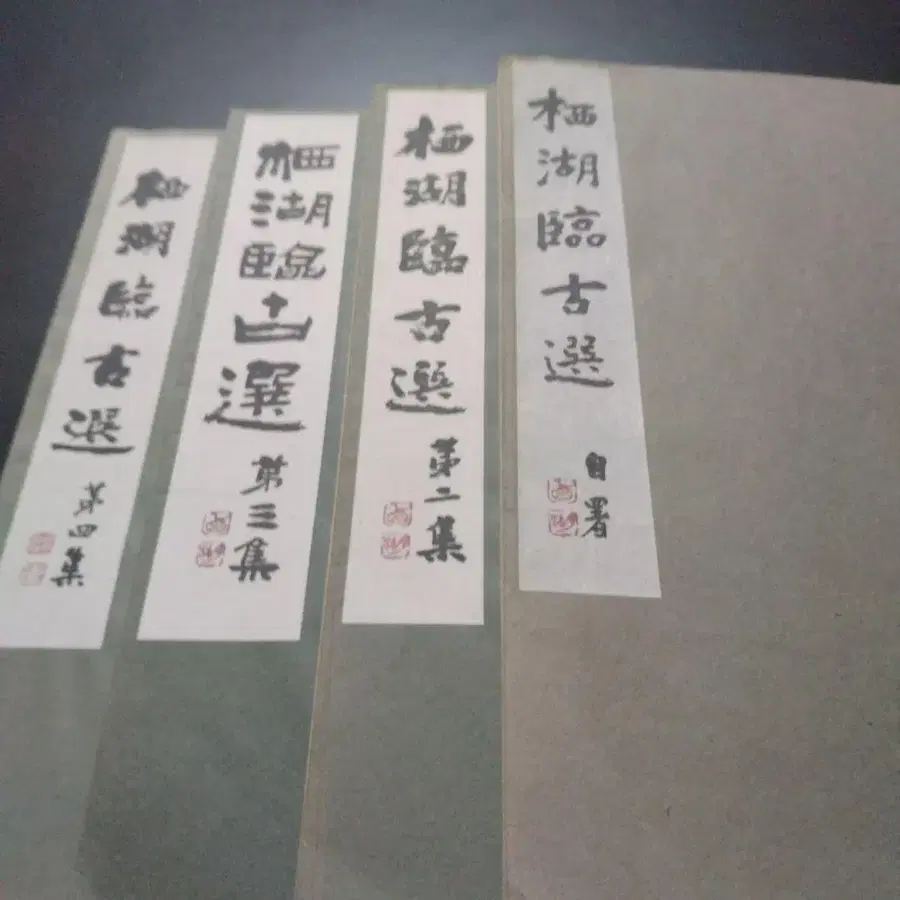 栖湖臨古選
自署
栖湖臨古選
第二集
栖湖臨古選
第三集
栖湖臨古選
第四集